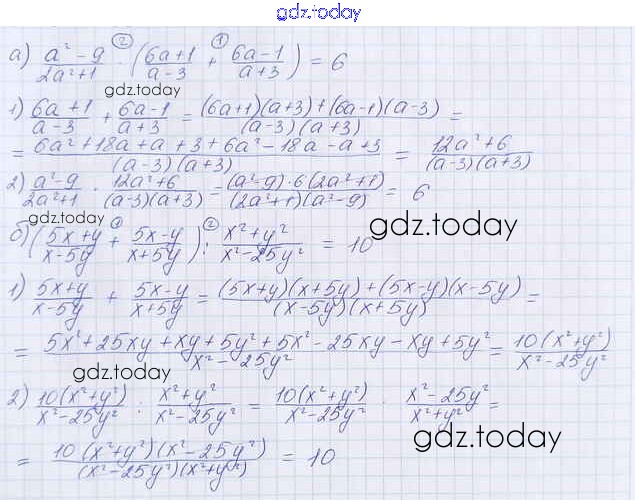 gdz.today
а) (a² - 9)/(2a² + 1) · ② ((6a + 1)/(a - 3) + ① (6a - 1)/(a + 3)) = 6
gdz.today
1) (6a + 1)/(a - 3) + (6a - 1)/(a + 3) = ((6a + 1)(a + 3) + (6a - 1)(a - 3))/((a - 3)(a + 3)) =
= (6a² + 18a + a + 3 + 6a² - 18a - a + 3)/((a - 3)(a + 3)) = (12a² + 6)/((a - 3)(a + 3))
2) (a² - 9)/(2a² + 1) · (12a² + 6)/((a - 3)(a + 3)) = ((a² - 9) · 6(2a² + 1))/((2a² + 1)(a² - 9)) = 6
gdz.today gdz.today
б) ((5x + y)/(x - 5y) + ① (5x - y)/(x + 5y)) : ② (x² + y²)/(x² - 25y²) = 10
1) (5x + y)/(x - 5y) + (5x - y)/(x + 5y) = ((5x + y)(x + 5y) + (5x - y)(x - 5y))/((x - 5y)(x + 5y)) =
= (5x² + 25xy + xy + 5y² + 5x² - 25xy - xy + 5y²)/(x² - 25y²) = 10(x² + y²)/(x² - 25y²)
gdz.today
2) 10(x² + y²)/(x² - 25y²) : (x² + y²)/(x² - 25y²) = 10(x² + y²)/(x² - 25y²) · (x² - 25y²)/(x² + y²) =
gdz.today
= (10(x² + y²)(x² - 25y²))/((x² - 25y²)(x² + y²)) = 10